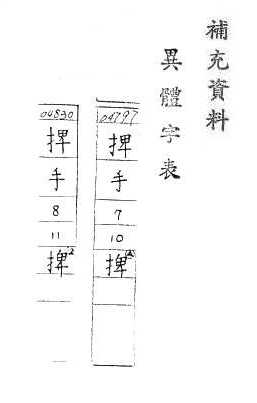 補充資料
異體字表
04797
捭
手
7
10
捭
04830
捭
手
8
11
捭